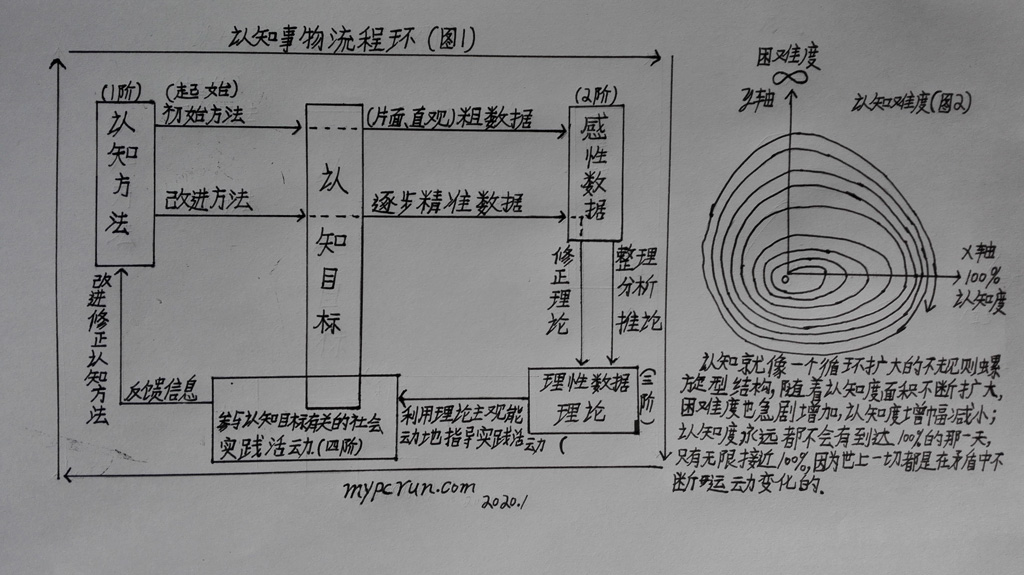 认知事物流程环(图1)
(1阶)
认知方法
(起始)
初始方法
改进方法
认知目标
(片面、直观)粗数据
逐步精准数据
(2阶)
感性数据
修正理论
整理
分析
推论
理性数据
理论
(三阶)
利用理论主观能
动地指导实践活动
参与认知目标有关的社会
实践活动.(四阶)
反馈信息
改进修正认知方法
mypcrun.com
2020.1
困难度
∞
y轴
认知难度(图2)
X轴
100%
认知度
认知就像一个循环扩大的不规则螺
旋型结构,随着认知度面积不断扩大,
困难度也急剧增加,认知度增幅减小;
认知度永远都不会有到达100%的那一天,
只有无限接近100%,因为世上一切都是在矛盾中不
断运动变化的.